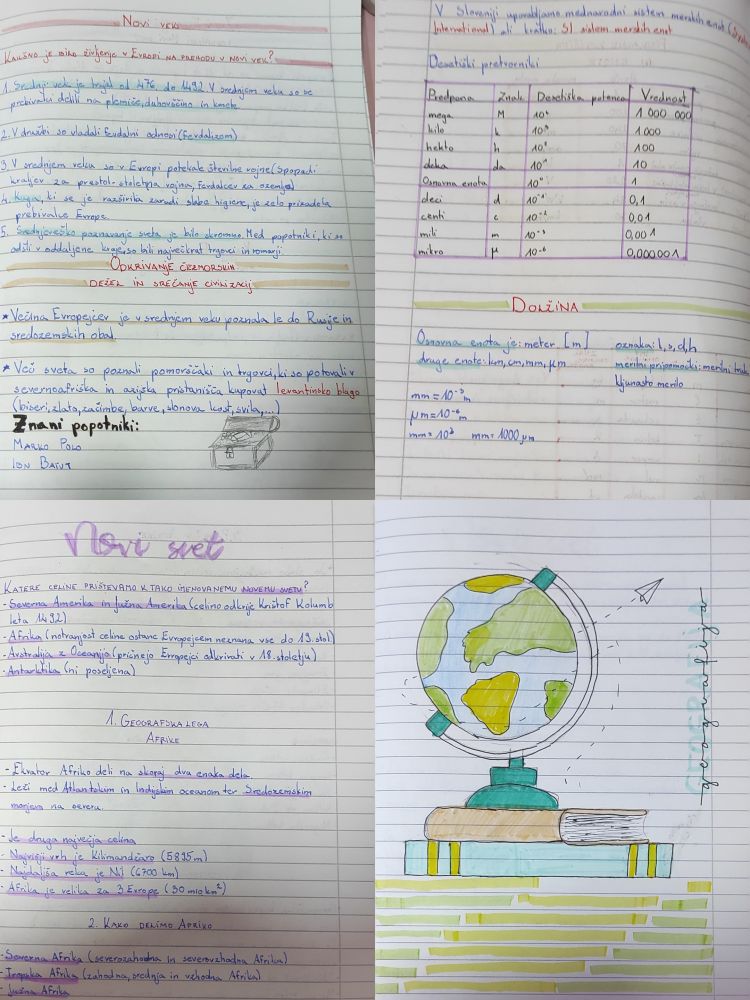 NOVI VEK
KAKŠNO JE BILO ŽIVLJENJE V EVROPI NA PREHODU V NOVI VEK?
1. Srednji vek je trajal od 476 do 1492 V srednjem veku so se
prebivalci delili na plemiče, duhovščino in kmete
2. V družbi so vladali fevdalni odnosi (fevdalizem)
3. V srednjem veku so v Evropi potekale številne vojne (spopadi
kraljev za prestol: stoletna vojna, fevdalcev za ozemlje)
4. Kuga, ki se je razširila zaradi slabe higiene, je zelo prizadela
prebivalce Evrope.
5. Srednjeveško poznavanje sveta je bilo skromno. Med popotniki, ki so
odšli v oddaljene kraje, so bili največkrat trgovci in romarji.
ODKRIVANJE ČEZMORSKIH
DEŽEL IN SREČANJE CIVILIZACIJ
* Večina Evropejcev je v srednjem veku poznala le do Rusije in
sredozemskih obal
* Več sveta so poznali pomorščaki in trgovci, ki so potovali v
severnoafriška in azijska pristanišča kupovat levantinsko blago
(biseri, zlato, začimbe, barve, slonova kost, svila,...)
Znani popotniki:
MARKO POLO
ION BATUT
V Sloveniji uporabljamo mednarodni sistem merskih enot
International) ali kratko: SI sistem merskih enot
Desetiški pretvorniki
Predpona Znak Desetiška potenca Vrednost
mega M 10⁶ 1 000 000
kilo k 10³ 1 000
hekto h 10² 100
deka da 10¹ 10
Osnovna enota 10⁰ 1
deci d 10⁻¹ 0,1
centi c 10⁻² 0,01
mili m 10⁻³ 0,001
mikro µ 10⁻⁶ 0,000001
DOLŽINA
Osnovna enota je: meter [m] oznaka: l, s, d, h
druge enote: km, cm, mm, µm merilni pripomočki: merilni trak,
kljunasto merilo
mm = 10⁻³m
µm = 10⁻⁶m
mm = 10³ mm = 1000 µm
Novi svet
KATERE CELINE PRIŠTEVAMO K TAKO IMENOVANEMU NOVEMU SVETU?
- Severna Amerika in Južna Amerika (celino odkrije Krištof Kolumb
leta 1492)
- Afrika (notranjost celine ostane Evropejcem neznana vse do 19. stol)
- Avstralija z Oceanijo (pričnejo Evropejci odkrivati v 18. stoletju)
- Antarktika (ni poseljena)
1. GEOGRAFSKA LEGA
AFRIKE
- Ekvator Afriko deli na skoraj dva enaka dela.
- Leži med Atlantskim in Indijskim oceanom ter Sredozemskim
morjem na severu.
- Je druga največja celina
- Najvišji vrh je Kilimandžaro (5895 m)
- Najdaljša reka je Nil (6700 km)
- Afrika je velika za 3 Evrope (30 mio km²)
2. KAKO DELIMO AFRIKO
- Severna Afrika (severozahodna in severovzhodna Afrika)
- Tropska Afrika (zahodna, srednja in vzhodna Afrika)
- Južna Afrika
GEOGRAFIJA
geografija